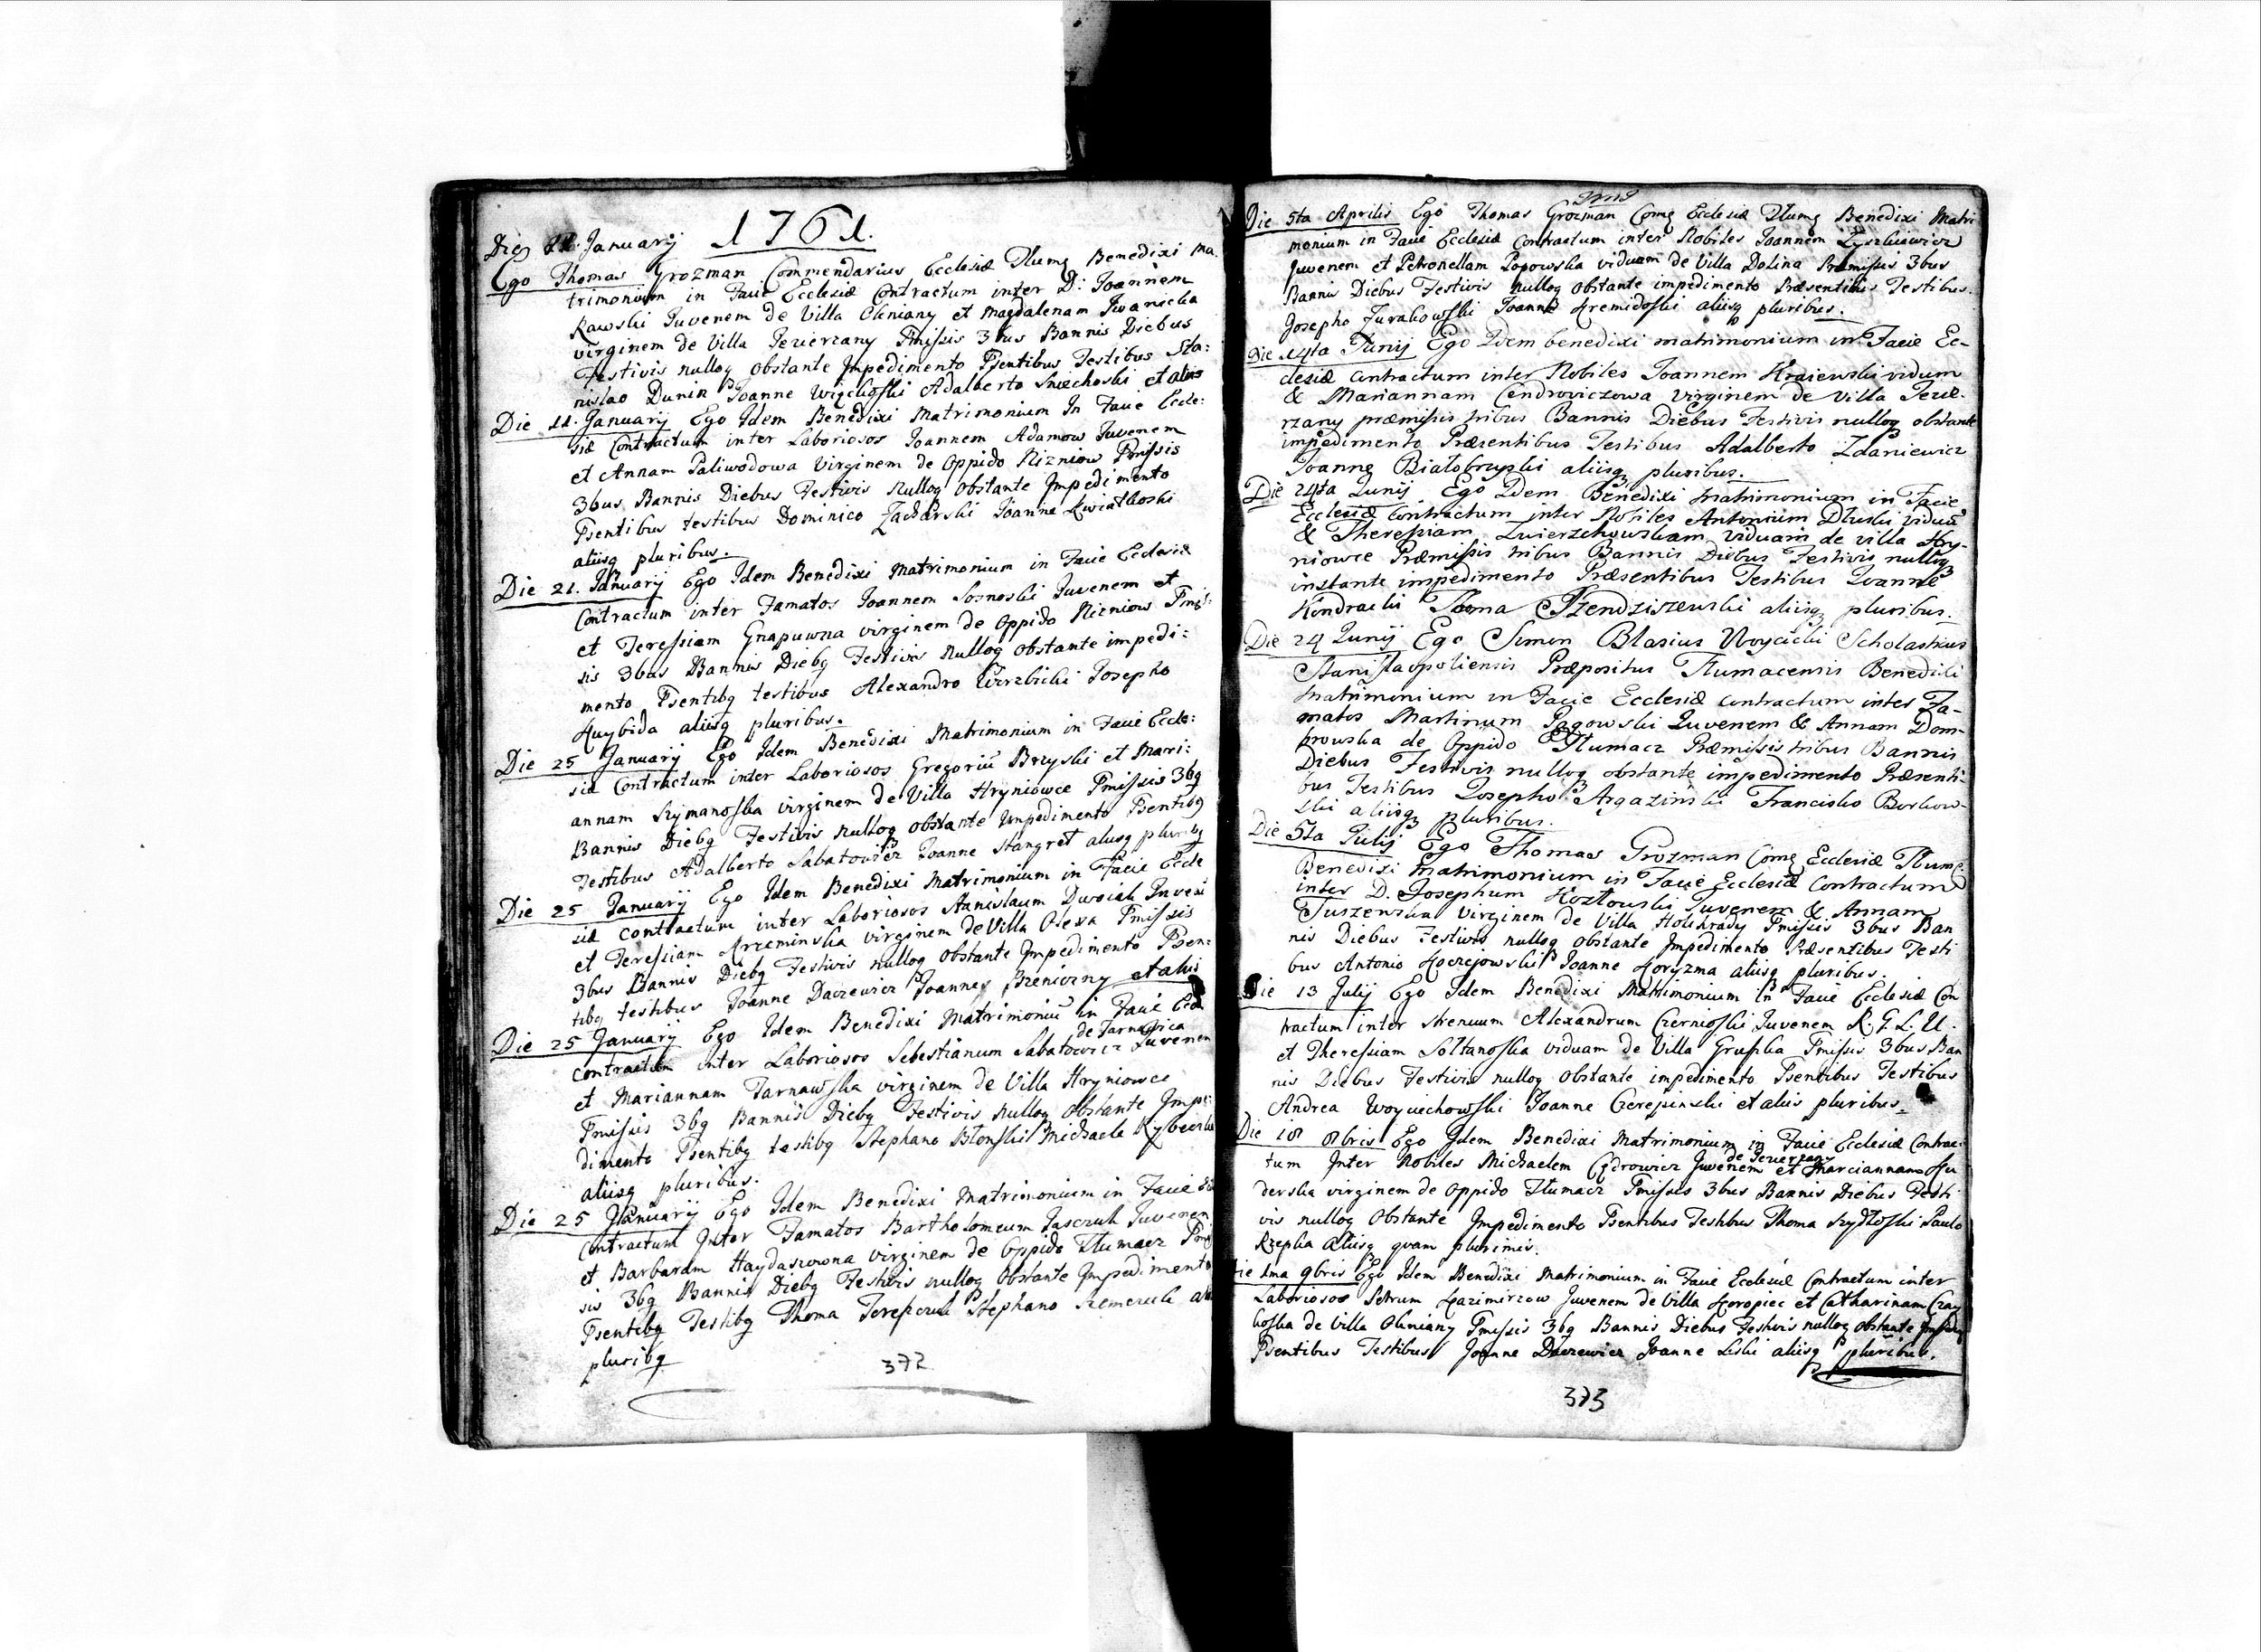 1761.
Die 11. January
Ego Thomas Grozman Commendarius Ecclesiæ Tlumę Benedixi Ma
trimonium in Facie Ecclesiæ Contractum inter D: Joannem
Rawski Juvenem de Villa Okniany et Magdalenam Iwanicka
virginem de Villa Jezierzany Pmissis 3bus Bannis Diebus
Festivis nulloq obstante Impedimento Psentibus Testibus Sta:
nislao Dunin Joanne Adalberto Sniechoski et aliis
Die 11. January Ego Idem Benedixi Matrimonium In Facie Eccle:
siæ Contractum inter Laboriosos Joannem Adamow Juvenem
et Annam Paliwodowa Virginem de Oppido Nizniow Pmissis
3bus Bannis Diebus Festivis Nulloq Obstante Impedimento
Psentibus testibus Dominico Zacharski Joanne Kwiatkoski
aliisq pluribus.
Die 21. January Ego Idem Benedixi Matrimonium in Facie Ecclesiæ
Contractum inter Famatos Joannem Sosnoski Juvenem et
et Teressiam Gnapuwna virginem de Oppido Nizniow Pmis:
sis 3bus Bannis Diebq Festivis Nulloq obstante impedi:
mento Psentibq testibus Alexandro Wirzbicki Josepho
Kuybida aliisq pluribus.
Die 25 January Ego Idem Benedixi Matrimonium in Facie Eccle:
siæ Contractum inter Laboriosos Gregoriū Brzyski et Mari:
annam Szymanoska virginem de Villa Hryniowce Pmissis 3bq
Bannis Diebq Festivis nulloq obstante Impedimento Psentibq
Testibus Adalberto Sabatowicz Joanne Stangret aliisq pluribq
Die 25 January Ego Idem Benedixi Matrimonium in Facie Eccle
siæ contractum inter Laboriosos Stanislaum Dwoiak Juvenē
et Teressiam Krzeminska virginem de Villa Olexa Pmissis
3bus Bannis Diebq Festivis nulloq obstante Impedimento Psen:
tibq testibus Joanne Daczewicz Joanne Pszeniczny et aliis
Die 25 January Ego Idem Benedixi Matrimoniū in Facie Eccle
de Tarnawica
contractum inter Laboriosos Sebestianum Sabatowicz Juvenem
et Mariannam Tarnawska virginem de Villa Hryniowce
Pmissis 3bq Bannis Diebq Festivis nulloq Obstante Impe:
dimento Psentibq testibq Stephano Blonski Michaele
aliisq pluribus.
Die 25 January Ego Idem Benedixi Matrimonium in Facie
Contractum Inter Famatos Bartholomeum Jasczuk Juvenem
et Barbaram Haydaszowna virginem de Oppido Tlumacz Pmis
sis 3bq Bannis Diebq Festivis nulloq Obstante Impedimento
Psentibq Testibq Thoma Teresczuk Stephano Szemeruk
pluribq
372
Die 5ta Aprilis Ego Thomas Grozman Comę Ecclesiæ Tlumę Benedixi Matri
monium in Facie Ecclesiæ Contractum inter Nobiles Joannem Lyszkiewicz
Juvenem et Petronellam Popowska viduam de Villa Dolina Præmissis 3bus
Bannis Diebus Festivis nulloq Obstante impedimento Præsentibus Testibus
Josepho Zurakowski Joanne Kremidoski aliisq pluribus.
Die 14ta Junij Ego Idem benedixi matrimonium in Facie Ec-
clesiæ contractum inter Nobiles Joannem Kraiewski viduum
& Mariannam Cendrowiczowa virginem de Villa Jezie-
rzany præmissis tribus Bannis Diebus Festivis nulloq obstante
impedimento Præsentibus Testibus Adalberto Zdaniewicz
Joanne Białobrzyski aliisq pluribus.
Die 24ta Junij Ego Idem Benedixi Matrimonium in Facie
Ecclesiæ Contractum inter Nobiles Antonium Dluski viduū
& Theressiam Zwierzchowskam viduam de villa Hry-
niowce Præmissis tribus Bannis Diebus Festivis nulloq
instante impedimento Præsentibus Testibus Joanne
Kondracki Thoma Szendziszewski aliisq pluribus.
Die 24 Junij Ego Simon Blasius Woycicki Scholasticus
Stanislaopoliensis Præpositus Tlumacensis Benedixi
Matrimonium in Facie Ecclesiæ contractum inter Fa-
matos Martinum Pagowski Juvenem & Annam Dom-
browska de Oppido Tlumacz Præmissis tribus Bannis
Diebus Festivis nulloq obstante impedimento Præsenti-
bus Testibus Josepho Argazinski Francisko Borkow-
ski aliisq pluribus.
Die 5ta Julij Ego Thomas Grozman Comę Ecclesiæ Tlumę
Benedixi Matrimonium in Facie Ecclesiæ Contractum
inter D. Josephum Kozłowski Juvenem & Annam
Tuszewska virginem de Villa Holihrady Pmissis 3bus Ban
nis Diebus Festivis nulloq obstante Impedimento Præsentibus Testi
bus Antonio Koczejowski Joanne Koryzma aliisq pluribus.
Die 13 Julij Ego Idem Benedixi Matrimonium in Facie Ecclesiæ Con
tractum inter strenuum Alexandrum Czernioski Juvenem R. G. L. U.
et Theressiam Soltanoska viduam de Villa Gruszka Pmissis 3bus Ban
nis Diebus Festivis nulloq Obstante impedimento Psentibus Testibus
Andrea Woyciechowski Joanne Czerepinski et aliis pluribus.
Die 18 8bris Ego Idem Benedixi Matrimonium in Facie Ecclesiæ Contrac:
de Jezierzany
tum Inter Nobiles Michaelem Cędrowicz Juvenem et Marciannam
derska virginem de Oppido Tłumacz Pmissis 3bus Bannis Diebus Festi
vis nulloq Obstante Impedimento Psentibus Testibus Thoma Szydłoski Paulo
Rzepka aliisq quam plurimis.
Die 1ma 9bris Ego Idem Benedixi Matrimonium in Facie Ecclesiæ Contractum inter
Laboriosos Petrum Kazimirzow Juvenem de Villa Koropiec et Catharinam Czay
koska de Villa Okniany Pmissis 3bq Bannis Diebus Festivis nulloq obstante
Psentibus Testibus Joanne Daczewicz Joanne Liski aliisq pluribus.
373